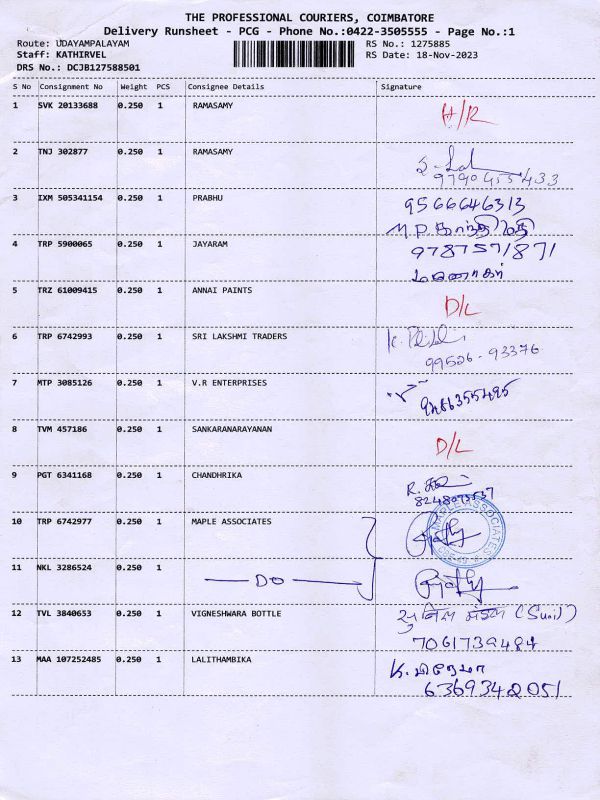 THE PROFESSIONAL COURIERS, COIMBATORE
Delivery Runsheet - PCG - Phone No.:0422-3505555 - Page No.:1
Route: UDAYAMPALAYAM
RS No.: 1275885
Staff: KATHIRVEL
RS Date: 18-Nov-2023
DRS No.: DCJB127588501
S No Consignment No Weight PCS Consignee Details Signature
1 SVK 20133688 0.250 1 RAMASAMY H/R
2 TNJ 302877 0.250 1 RAMASAMY
9790455433
3 IXM 505341154 0.250 1 PRABHU 9566646313
M.P.காந்திமதி
4 TRP 5900065 0.250 1 JAYARAM 9787571871
மனோகர்
5 TRZ 61009415 0.250 1 ANNAI PAINTS D/L
6 TRP 6742993 0.250 1 SRI LAKSHMI TRADERS
99526-93376
7 MTP 3085126 0.250 1 V.R ENTERPRISES
8 TVM 457186 0.250 1 SANKARANARAYANAN D/L
9 PGT 6341168 0.250 1 CHANDHRIKA
10 TRP 6742977 0.250 1 MAPLE ASSOCIATES
MAPLE ASSOCIATES
11 NKL 3286524 0.250 1 DO
12 TVL 3840653 0.250 1 VIGNESHWARA BOTTLE सुनिल मंडल (Sunil)
7061739484
13 MAA 107252485 0.250 1 LALITHAMBIKA K.
6369342051